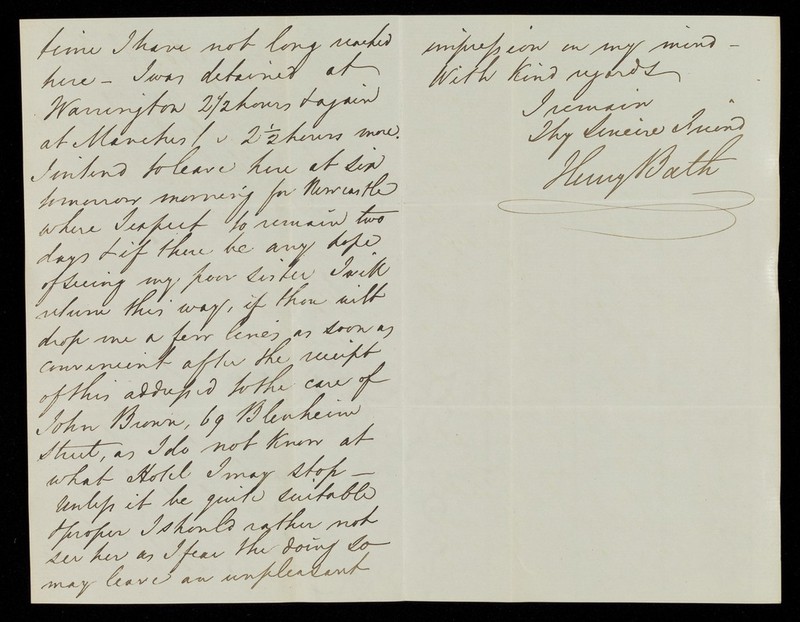 time I have not long reached
here - I was detained at
Warrington 2 1/2 hours & again
at Manches 2 1/2 hours more.
I intend to leave here at six
tomorrow morning for Newcastle
where I expect to remain two
days & if there be any hope
of seeing my poor sister I will
return this way, if thou wilt
drop me a few lines as soon as
convenient after the receipt
of this addressed to the care of
John Brown, 69 Blenheim
Street, as I do not know at
what Hotel I may stop -
Unless it be quite suitable
& proper I should rather not
see her as I fear the doing so
may leave an unpleasant
impression on my mind -
With kind regards
I remain
Thy Sincere Friend
Henry Bath